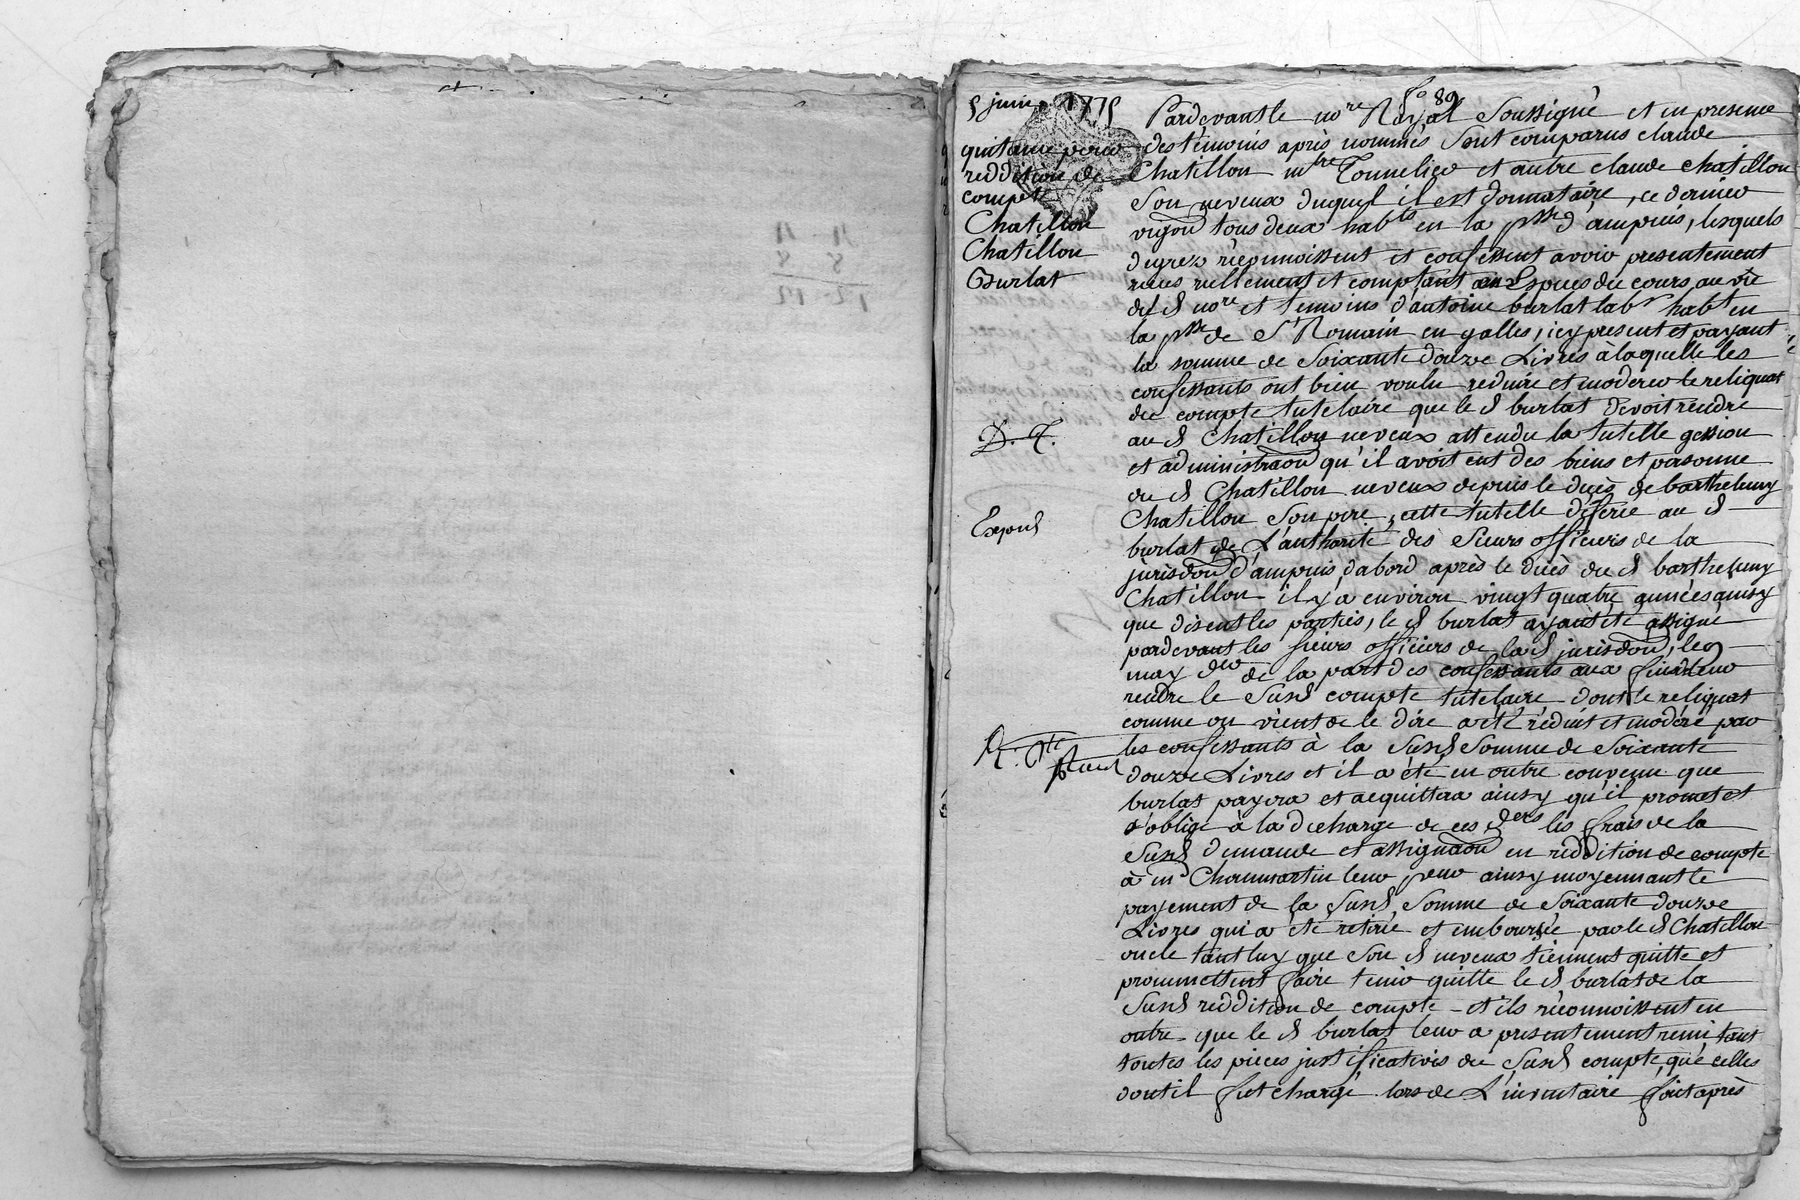 5 juin 1775
quitance pour
reddition de
compte
Chatillon
Chatillon
Burlat
D. T.
Exped
fo 89
Pardevant le nore Royal Soussigné et en presence
des temoins après nommés Sont comparus claude
Chatillon mtre Tonnelier et autre claude chatillon
Son neveux duquel il est donnataire, ce dernier
vigon tous deux habts en la psse d'ampuis, lesquels
de gres reconnoissent et confessent avoir presentement
receu reellement et comptant en Espèces du cours au vû
du d nore et temoins d'antoine burlat labr habt en
la psse de St Romain en galles, icy present et payant
la somme de Soixante douze Livres à laquelle les
confessants ont bien voulu reduire et moderer le reliquat
du compte tutelaire que le d burlat devoit rendre
au d Chatillon neveux attendu la tutelle gession
et administraon qu'il avoit eut des biens et personne
du d Chatillon neveux depuis le decès de barthelemy
Chatillon Son pere, cette tutelle deferée au d
burlat de L'authorité des Sieurs officiers de la
jurisdon d'ampuis d'abord après le decès du d barthelemy
Chatillon il y a environ vingt quatre années ainsy
que disent les parties, le d burlat ayant été assigné
pardevant les sieurs officiers de lad jurisdon, le 9
may der de la part des confessants aux fins de leur
rendre le Susd compte tutelaire dont le reliquat
comme on vient de le dire a été reduit et modéré par
les confessants à la Susd Somme de Soixante
douze Livres et il a été en outre convenu que
burlat payera et acquittera ainsy qu'il promet et
s'oblige à la decharge de ces ders les frais de la
Susd demande et assignaon en reddition de compte
à me Chommartin leur pcur ainsy moyennant le
payement de la Susd Somme de Soixante douze
Livres qui a été retirée et emboursée par le d Chatillon
oncle tant luy que Son d neveux tiennent quitte et
prommettent faire tenir quitte le d burlat de la
Susd reddition de compte - et ils reconnoissent en
outre que le d burlat leur a presentement remi tant
toutes les pieces justificatives du Susd compte, que celles
dont il fut chargé lors de L'inventaire fait après